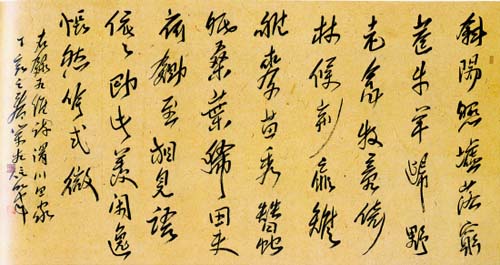 斜陽照墟落窮
巷牛羊歸野
老念牧童倚
杖候荆扉雉
雊麥苗秀蠶
眠桑葉稀田夫
荷鋤至相見語
依々即此羨閑逸
悵然吟式微
右錄王維詩渭川田家
丁亥之春